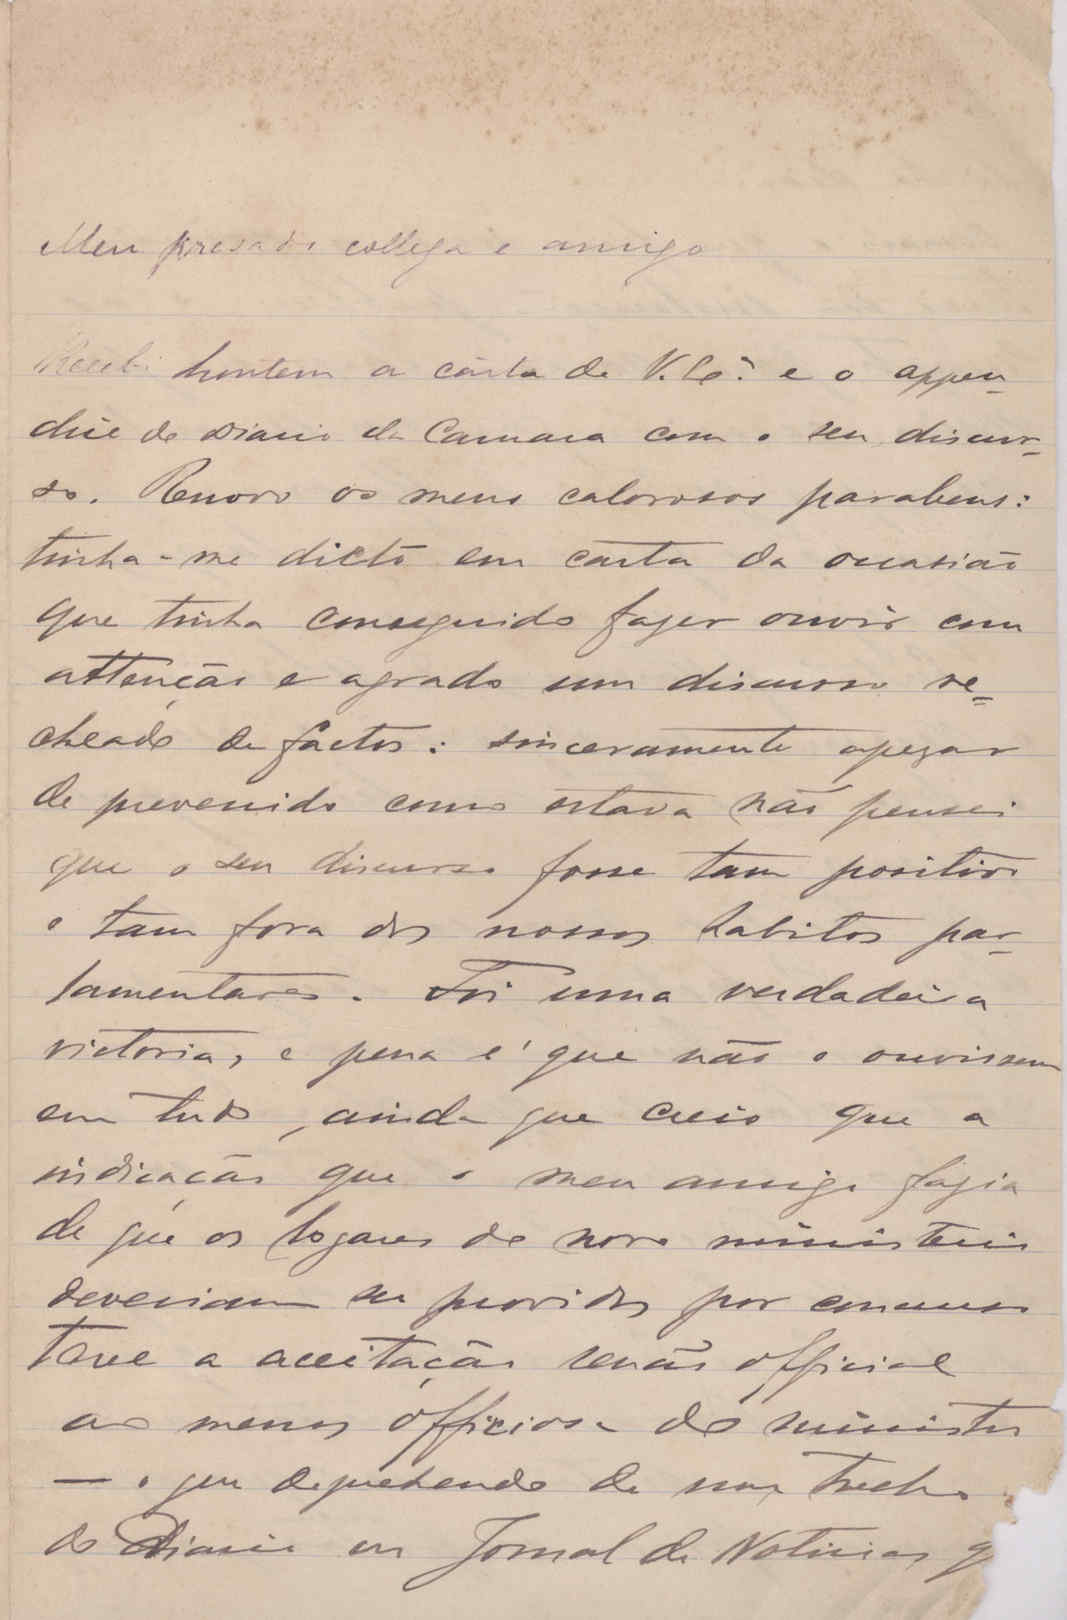 Meu presado collega e amigo
Recebi hontem a carta de V. Ex.ª e o appen-
dice do Diario da Camara com o seu discur-
so. Renovo os meus calorosos parabens:
tinha-me dicto em carta da occasião
que tinha conseguido fazer ouvir com
attenção e agrado um discurso re-
cheado de factos: sinceramente apezar
de prevenido como estava não pensei
que o seu discurso fosse tam positivo
e tam fora dos nossos habitos par-
lamentares. Foi uma verdadeira
victoria, e pena é que não o ouvissem
em tudo, ainda que creio que a
indicação que o meu amigo fazia
de que os logares do novo ministerio
deveriam ser providos por concurso
teve a aceitação senão official
ao menos officiosa do ministro
— o que deprehendo de um trecho
do Diario em Jornal de Noticias q